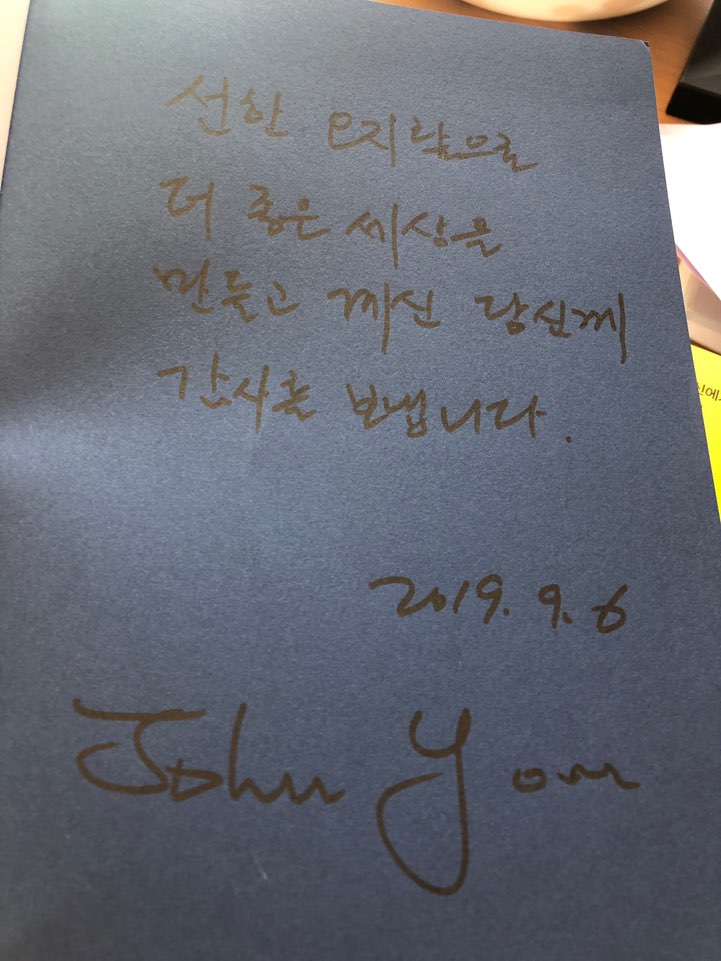 선한 오지랖으로
더 좋은 세상을
만들고 께신 당신께
감사를 보냅니다.
2019. 9. 6
John Yom